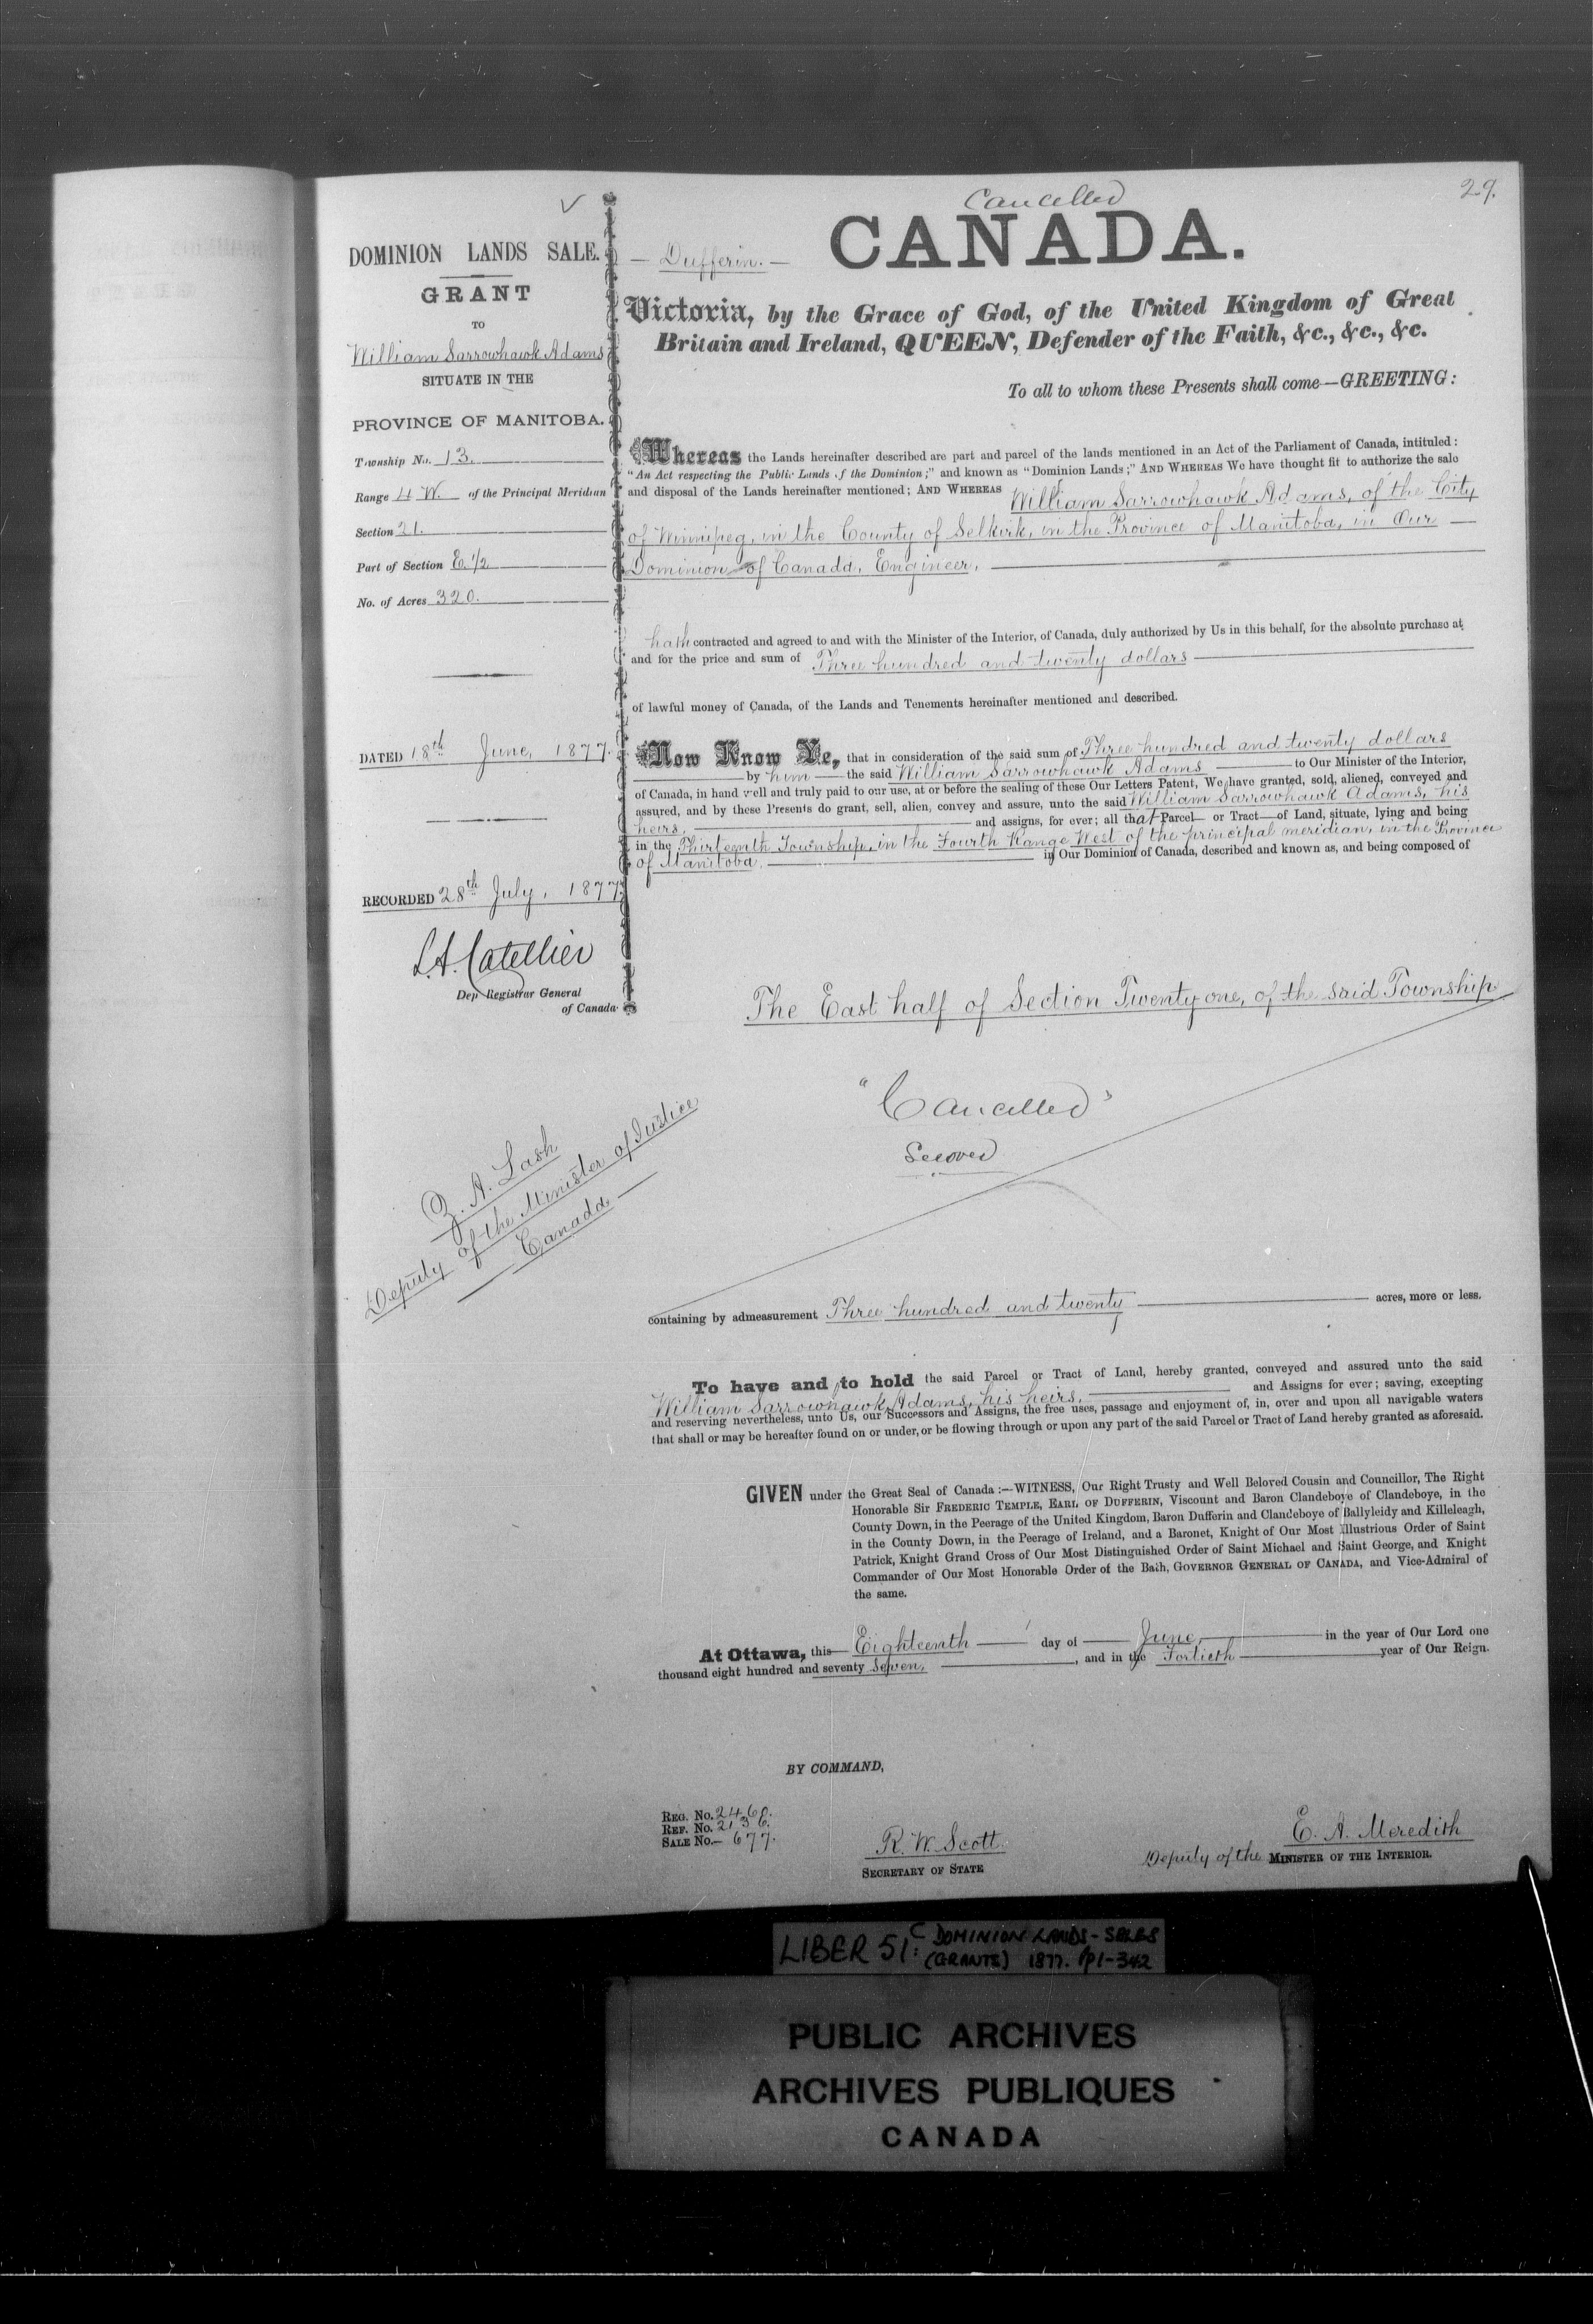 29.
Cancelled
✓
DOMINION LANDS SALE.
GRANT
TO
William Sarrowhawk Adams
SITUATE IN THE
PROVINCE OF MANITOBA.
Township No. 13.
Range 4 W. of the Principal Meridian
Section 21.
Part of Section E. 1/2
No. of Acres 320.
DATED 18th June, 1877.
RECORDED 28th July, 1877.
L.A. Catellier
Dep Registrar General
of Canada
Z. A. Lash
Deputy of the Minister of Justice
Canada
— Dufferin. —
CANADA.
Victoria, by the Grace of God, of the United Kingdom of Great
Britain and Ireland, QUEEN, Defender of the Faith, &c., &c., &c.
To all to whom these Presents shall come—GREETING:
Whereas the Lands hereinafter described are part and parcel of the lands mentioned in an Act of the Parliament of Canada, intituled:
"An Act respecting the Public Lands of the Dominion;" and known as "Dominion Lands;" AND WHEREAS We have thought fit to authorize the sale
and disposal of the Lands hereinafter mentioned; AND WHEREAS William Sarrowhawk Adams, of the City
of Winnipeg, in the County of Selkirk, in the Province of Manitoba, in Our
Dominion of Canada, Engineer,
hath contracted and agreed to and with the Minister of the Interior, of Canada, duly authorized by Us in this behalf, for the absolute purchase at
and for the price and sum of Three hundred and twenty dollars
of lawful money of Canada, of the Lands and Tenements hereinafter mentioned and described.
Now Know Ye, that in consideration of the said sum of Three hundred and twenty dollars
by him the said William Sarrowhawk Adams to Our Minister of the Interior,
of Canada, in hand well and truly paid to our use, at or before the sealing of these Our Letters Patent, We have granted, sold, aliened, conveyed and
assured, and by these Presents do grant, sell, alien, convey and assure, unto the said William Sarrowhawk Adams, his
heirs, and assigns, for ever; all that Parcel or Tract of Land, situate, lying and being
in the Thirteenth Township, in the Fourth Range West of the principal meridian, in the Province
of Manitoba, in Our Dominion of Canada, described and known as, and being composed of
The East half of Section Twenty one, of the said Township
"Cancelled"
containing by admeasurement Three hundred and twenty acres, more or less.
To have and to hold the said Parcel or Tract of Land, hereby granted, conveyed and assured unto the said
William Sarrowhawk Adams, his heirs, and Assigns for ever; saving, excepting
and reserving nevertheless, unto Us, our Successors and Assigns, the free uses, passage and enjoyment of, in, over and upon all navigable waters
that shall or may be hereafter found on or under, or be flowing through or upon any part of the said Parcel or Tract of Land hereby granted as aforesaid.
GIVEN under the Great Seal of Canada:—WITNESS, Our Right Trusty and Well Beloved Cousin and Councillor, The Right
Honorable Sir FREDERIC TEMPLE, EARL OF DUFFERIN, Viscount and Baron Clandeboye of Clandeboye, in the
County Down, in the Peerage of the United Kingdom, Baron Dufferin and Clandeboye of Ballyleidy and Killeleagh,
in the County Down, in the Peerage of Ireland, and a Baronet, Knight of Our Most Illustrious Order of Saint
Patrick, Knight Grand Cross of Our Most Distinguished Order of Saint Michael and Saint George, and Knight
Commander of Our Most Honorable Order of the Bath, GOVERNOR GENERAL OF CANADA, and Vice-Admiral of
the same.
At Ottawa, this Eighteenth day of June, in the year of Our Lord one
thousand eight hundred and seventy seven, and in the Fortieth year of Our Reign.
BY COMMAND,
REG. No. 2460.
REF. No. 2136.
SALE No. 677.
R. W. Scott.
SECRETARY OF STATE
E. A. Meredith
Deputy of the MINISTER OF THE INTERIOR.
LIBER 51C: DOMINION LANDS-SALES
(GRANTS) 1877. pp1-342
PUBLIC ARCHIVES
ARCHIVES PUBLIQUES
CANADA